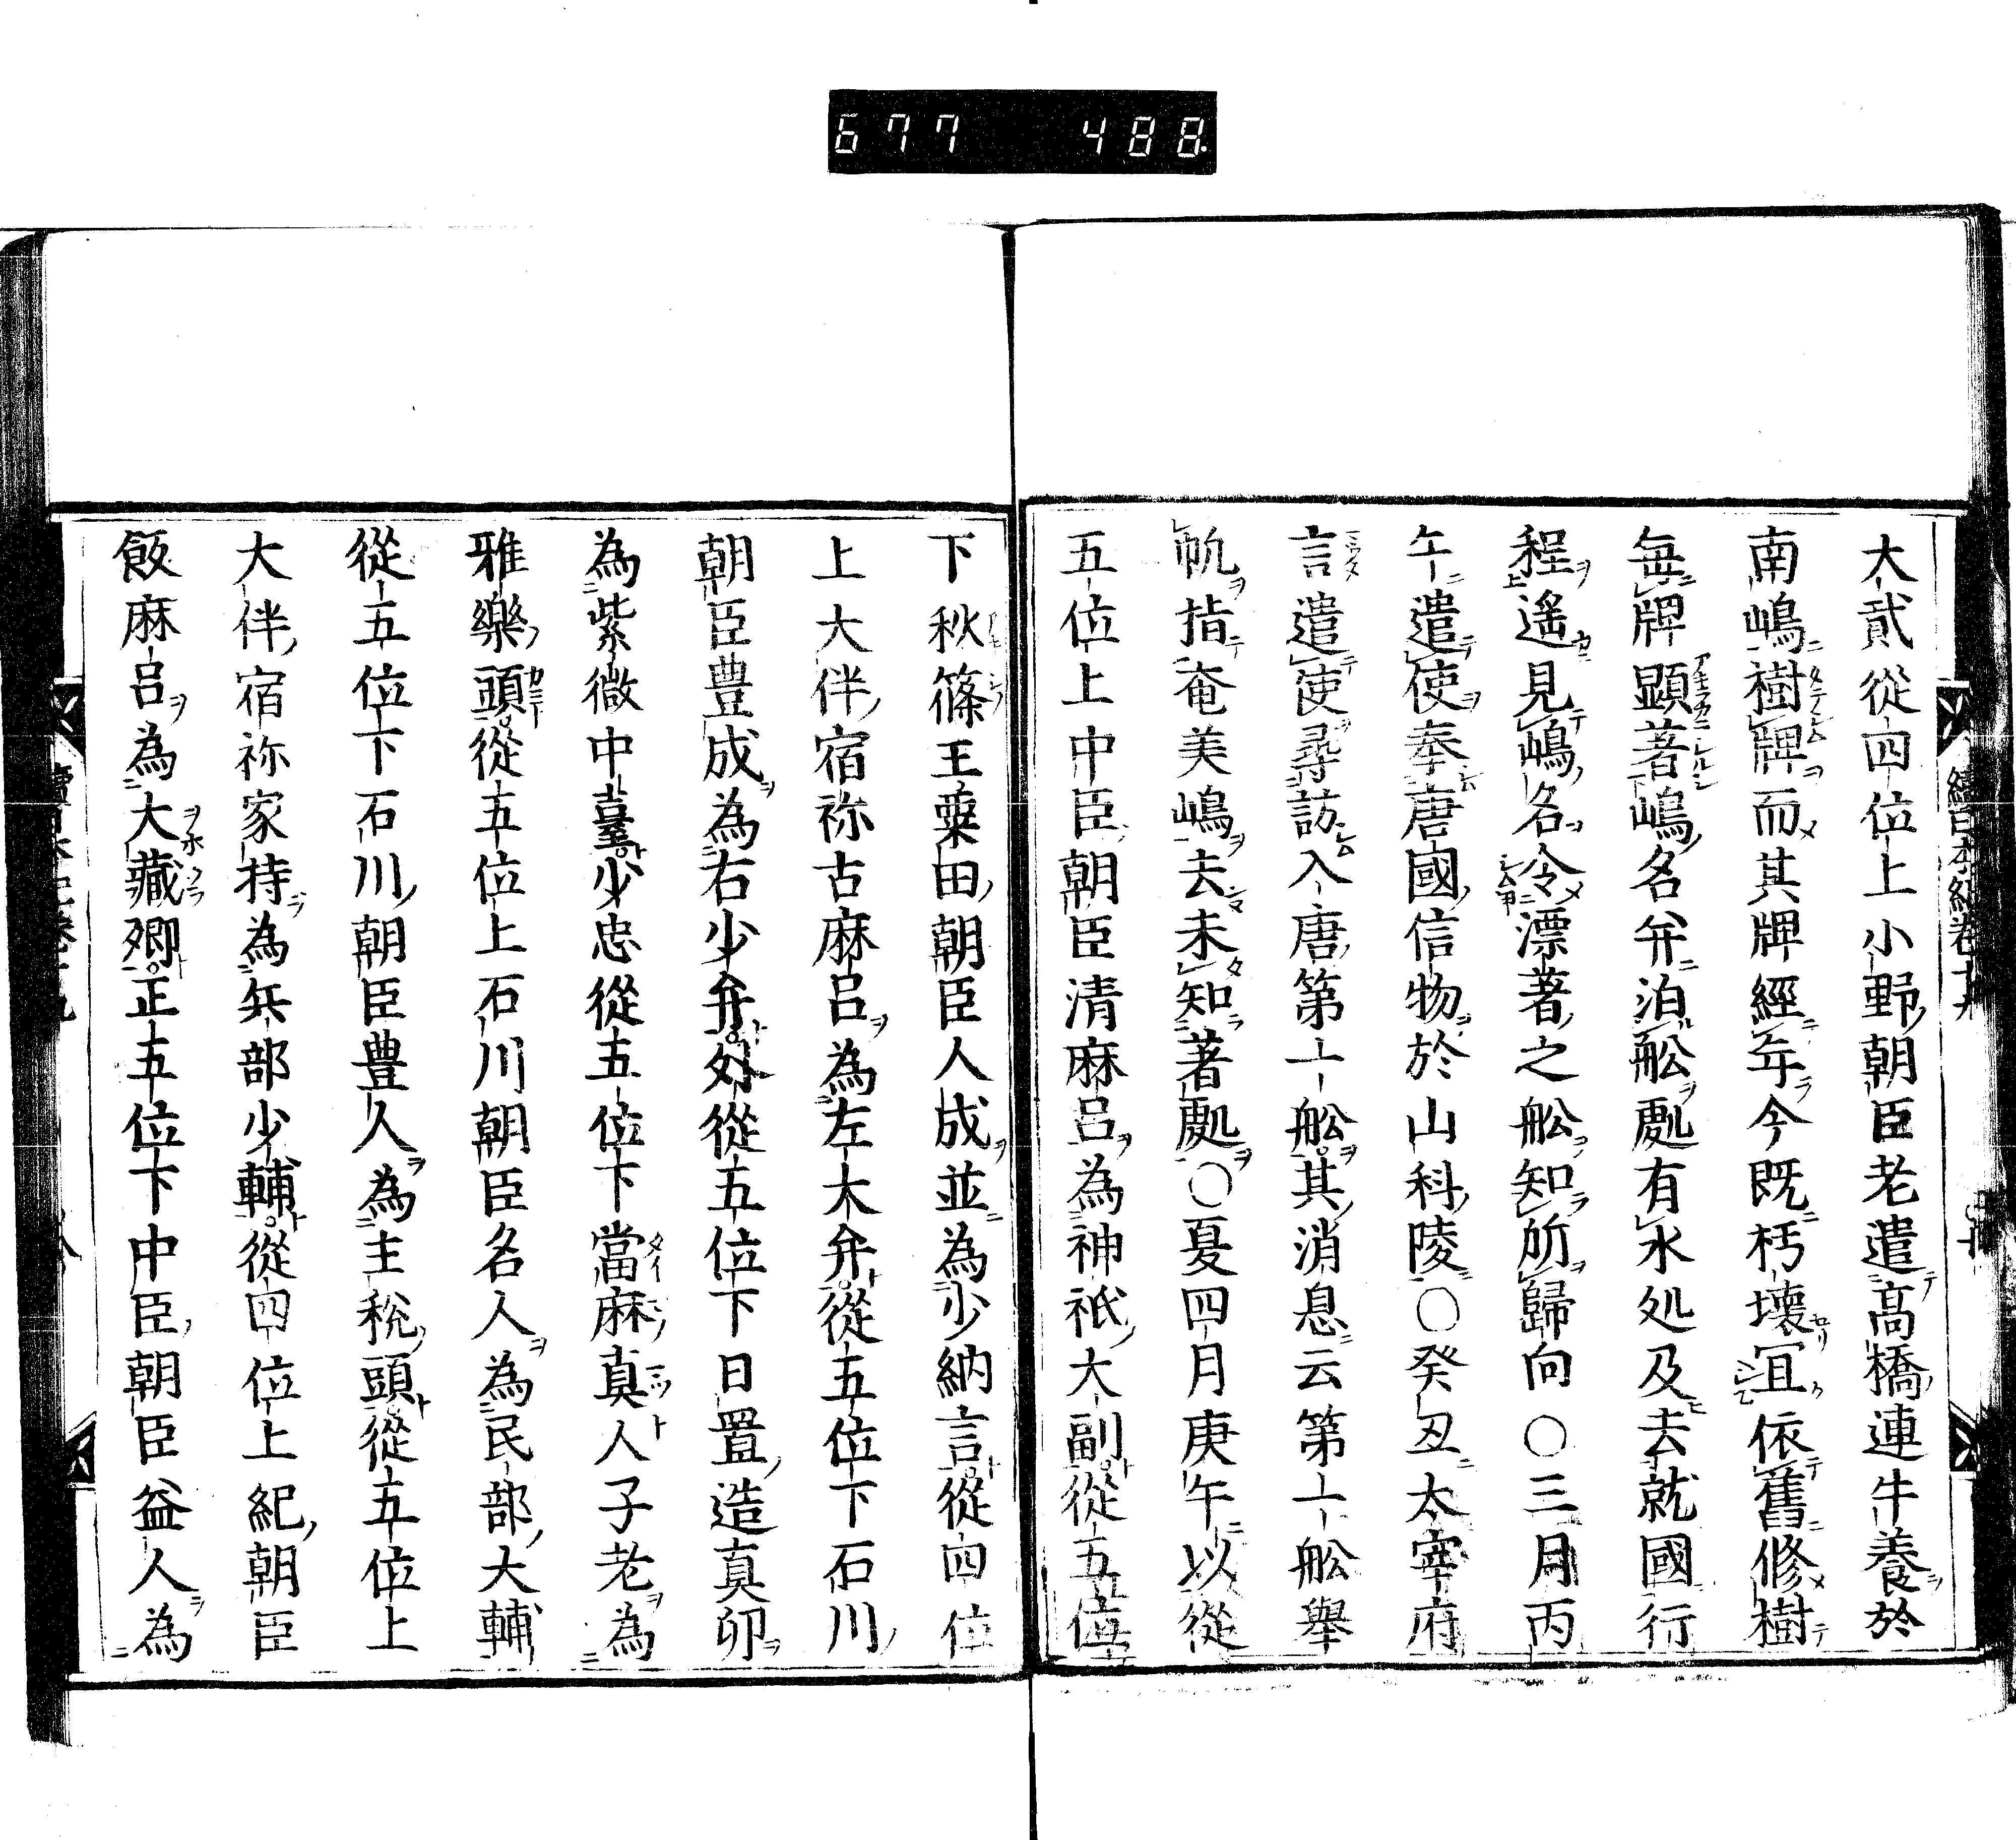 677 488
大貳從四位上小野朝臣老遣高橋連牛養於
南嶋樹牌而其牌經年今既朽壞冝依舊修樹
毎牌顯著嶋名并泊舩䖏有水処及去就國行
程遥見嶋名令漂著之舩知所歸向〇三月丙
午遣使奉唐國信物於山科陵〇癸丑太宰府
言遣使尋訪入唐第一舩其消息云第一舩舉
帆指奄美嶋去未知著䖏〇夏四月庚午以從
五位上中臣朝臣清麻呂為神祇大副從五位
下秋篠王粟田朝臣人成並為少納言從四位
上大伴宿祢古麻呂為左大弁從五位下石川
朝臣豊成為右少弁外從五位下日置造真卯
為紫微中臺少忠從五位下當麻真人子老為
雅樂頭從五位上石川朝臣名人為民部大輔
從五位下石川朝臣豊人為主税頭從五位上
大伴宿祢家持為兵部少輔從四位上紀朝臣
飯麻呂為大藏卿正五位下中臣朝臣益人為